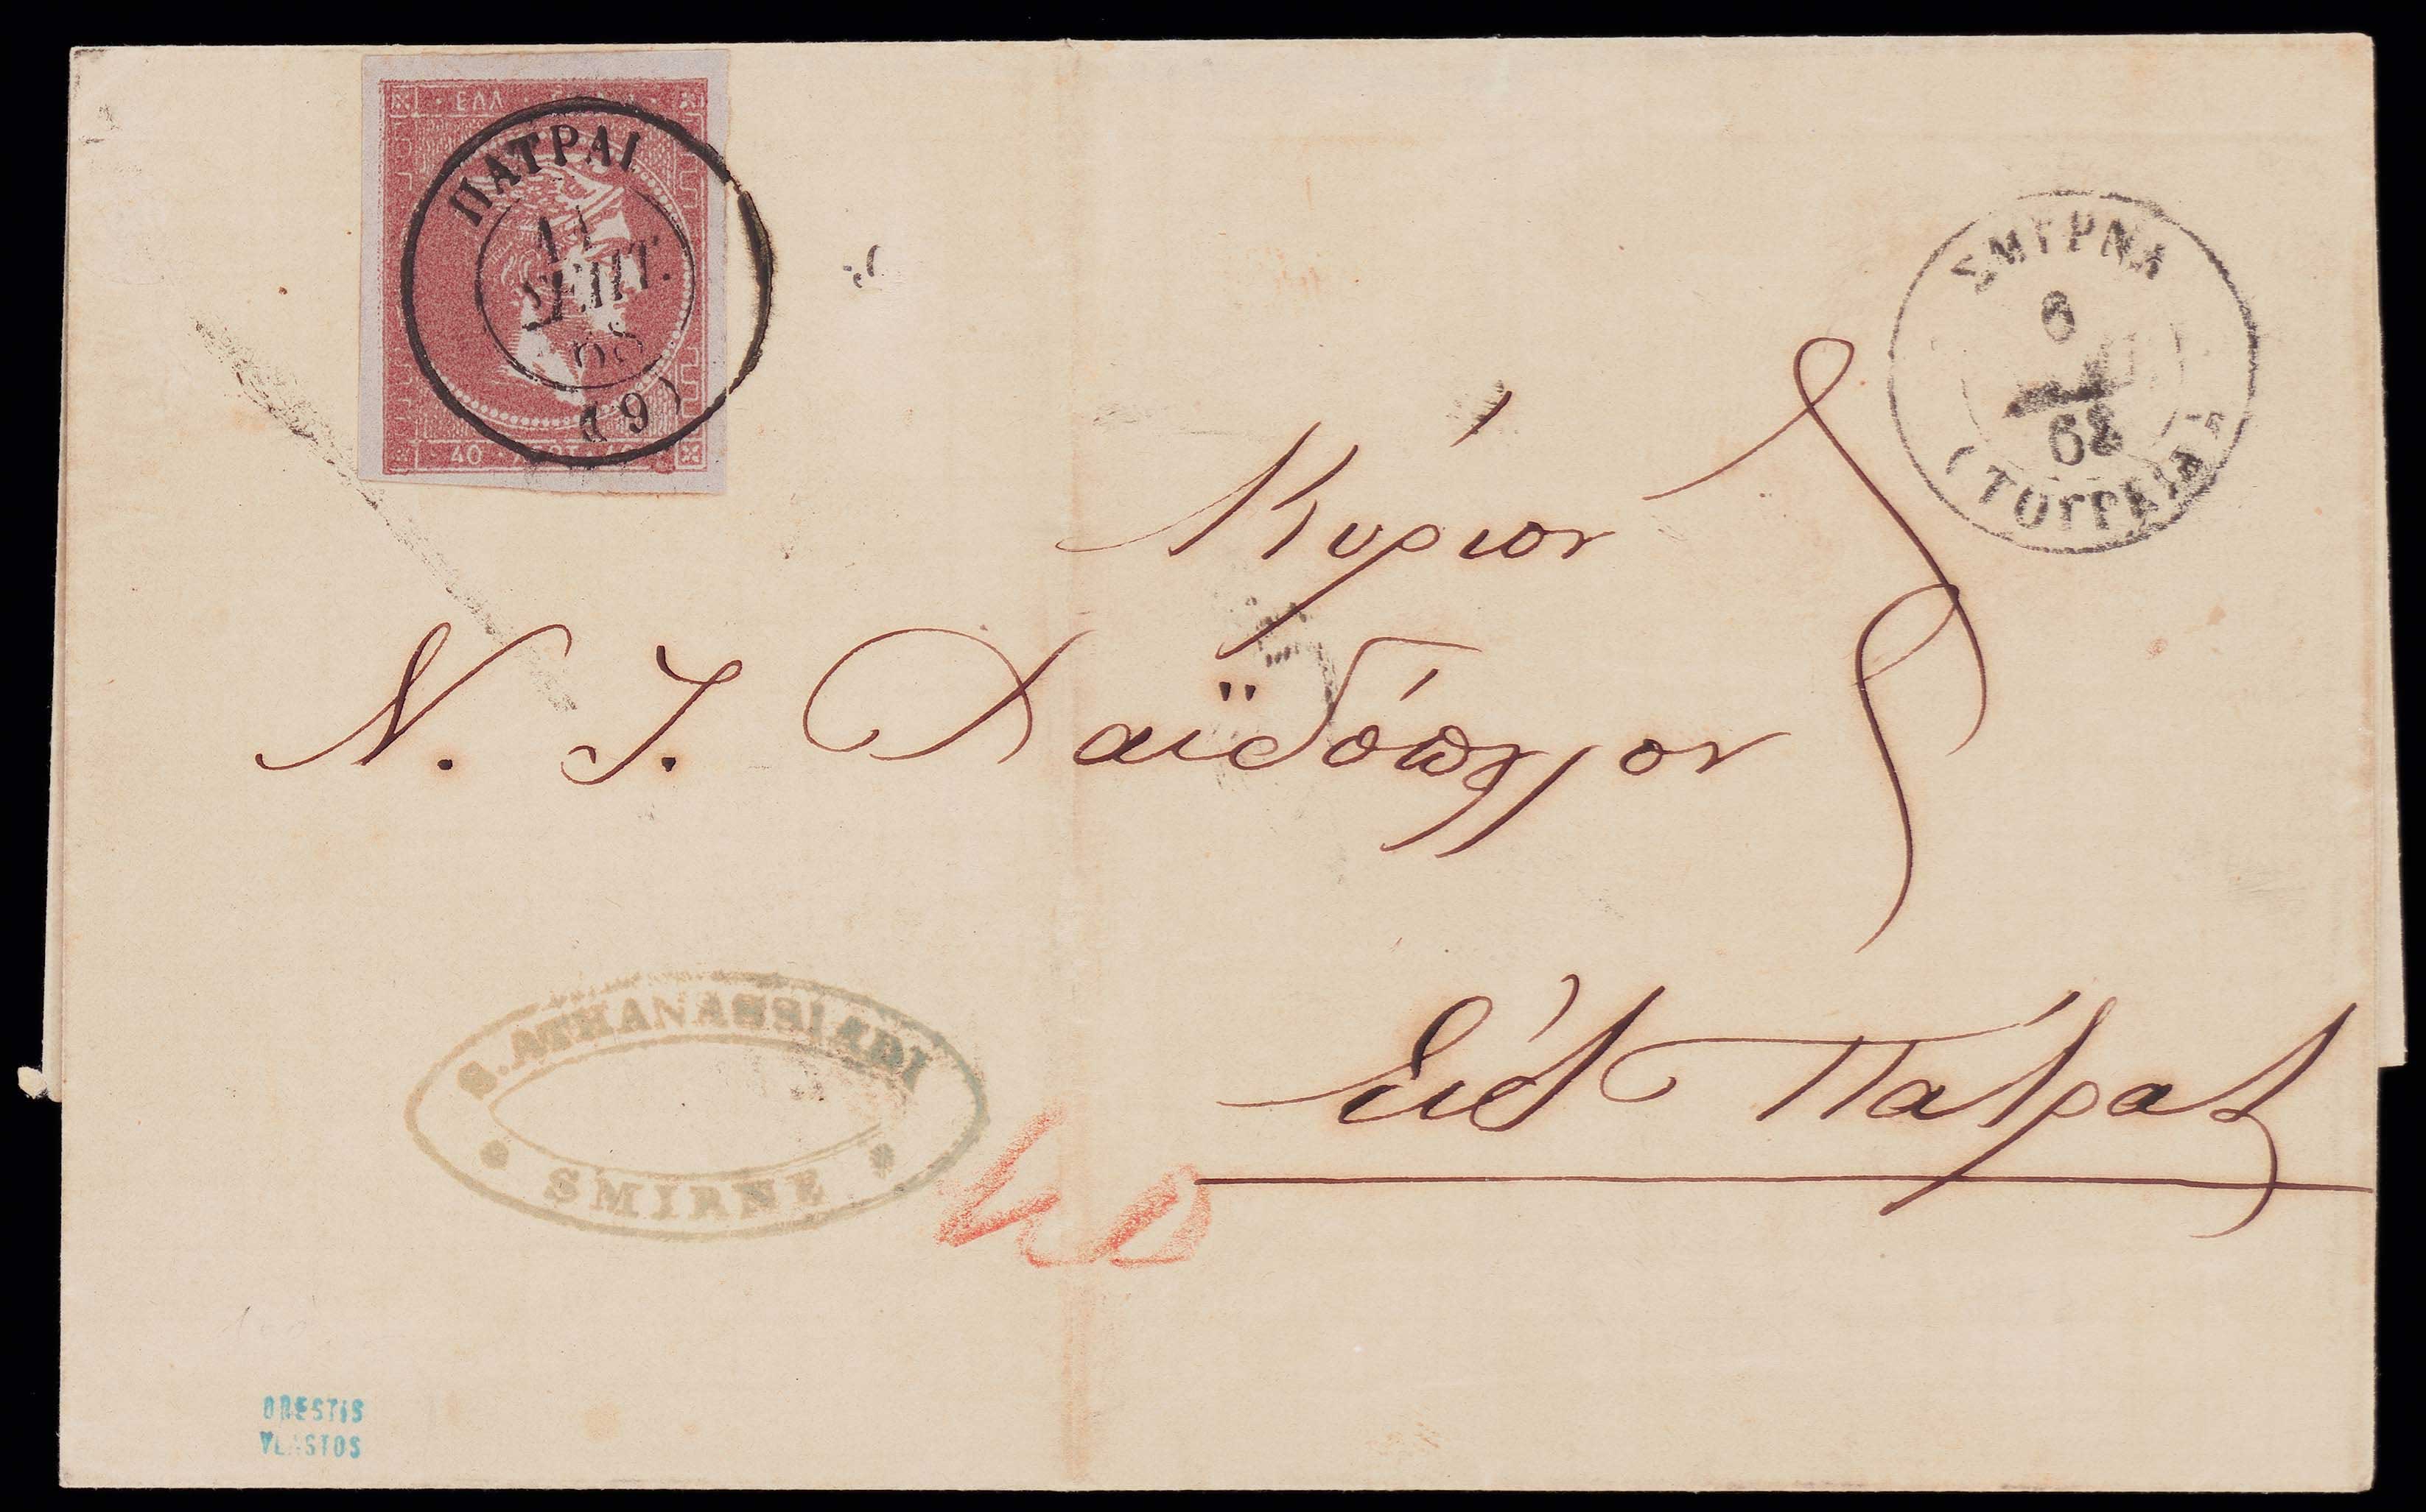 ΕΛΛ
ΠΑΤΡΑΙ
11
ΣΕΠΤ.
68
(9)
40 ΛΕΠΤ
ΣΜΥΡΝΑ
6
68
(ΤΟΥΡΚΙΑ)
Κύριον
Ν. Ι. Χαϊδόπουλον
Εἰς Πάτρας
S. ATHANASSIADI
SMIRNE
40
ORESTIS
VLASTOS